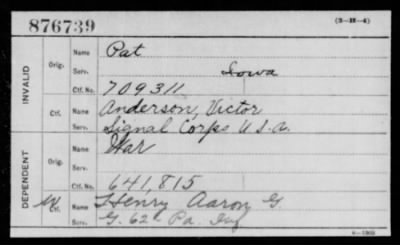 876739
(3-H-4)
INVALID
Orig.
Name Pat
Serv. Iowa
Ctf. No. 709311
Ctf.
Name Anderson, Victor
Serv. Signal Corps U.S.A.
DEPENDENT
Orig.
Name War
Serv.
Ctf. No. 641,815
Ctf.
Name Henry Aaron G.
Serv. G. 62d Pa. Inf